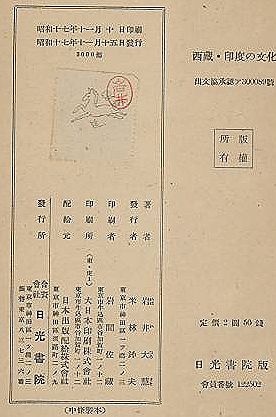 西蔵・印度の文化
出文協承認ア300089號
版權
所有
定價2圓50錢
日光書院版
會員番號122502
昭和十七年十一月十日印刷
昭和十七年十一月十五日發行
3000部
岩井
著者 岩井大慧
發行者 米林 夫
東京市神田區一ツ橋二ノ三
印刷者 岩間
東京市牛込區市谷加賀町一ノ十二
印刷所 大日本印刷株式會社
東京市牛込區市谷加賀町一ノ十二
配給元 日本出版配給株式會社
東京市神田區淡路町二ノ九
發行所 合資會社 日光書院
東京市神田區一ツ橋二ノ三
振替東京八三七二六番